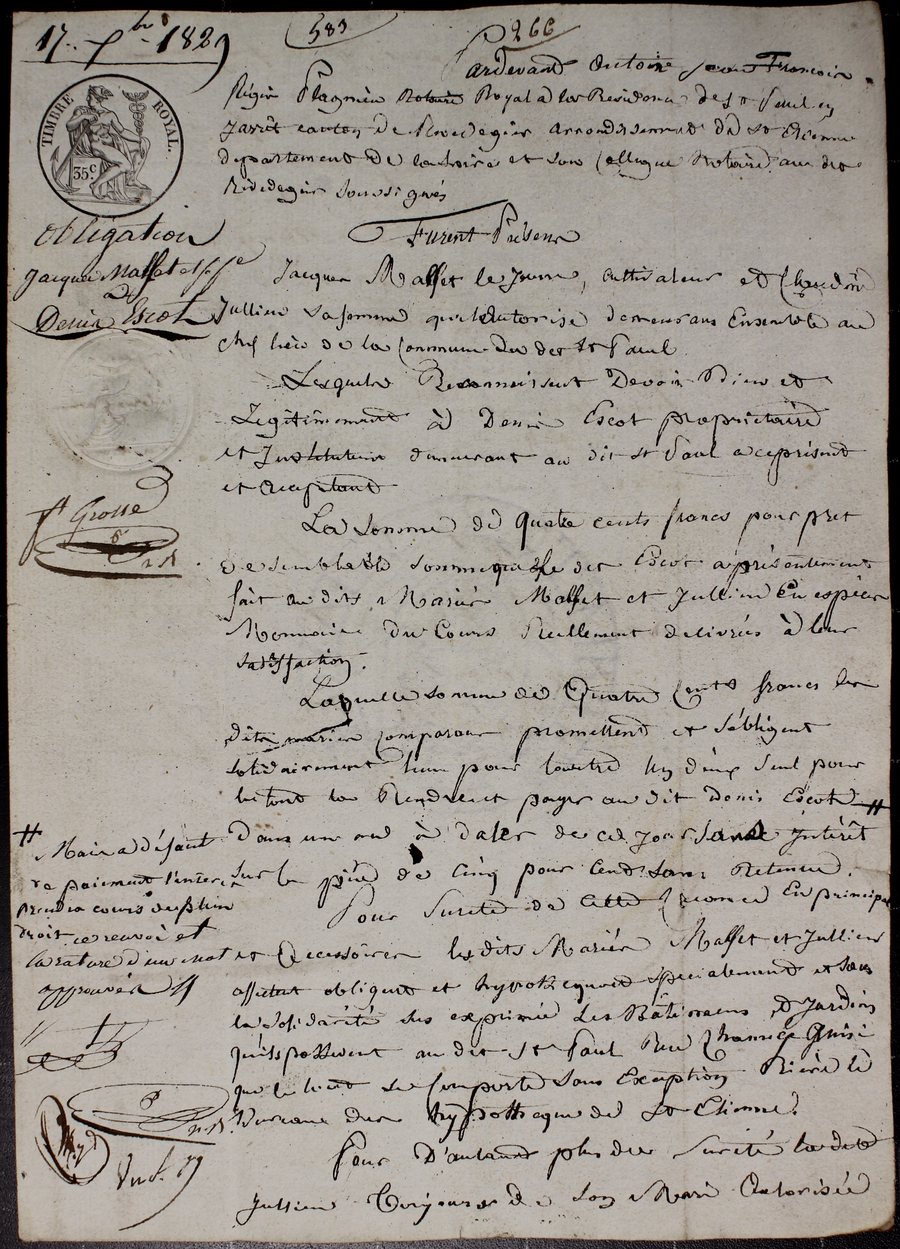 17. 7bre 1829
583
266
Pardevant Antoine Jean François
Régis Notaire Royal a la Residence de St Paul en
Jarêt canton de Rivedegier arrondissement de St Etienne
departement de la Loire et son Collegue Notaire au dit
Rivedegier soussignés
TIMBRE ROYAL.
35c
obligation
Jacques Masset et sa fe
a
Denis Escot
Furent Présens
Jacques Masset le Jeune, cultivateur et Claudine
Jullien sa femme qu'il autorise demeurans Ensemble au
chef lieu de la Commune du dit St Paul
Lesquels Reconnaissent Devoir Bien et
Legitimement à Denis Escot propriétaire
et Instituteur demeurant au dit St Paul a ce présent
et acceptant
ft Grosse
La somme de quatre cents francs pour pret
de semblable somme que le dit Escot a présentement
fait au dits Mariés Masset et Jullien En espèces
Monnoie du Cours Reellement delivrés à leur
satisfaction.
Laquelle somme de Quatre Cents francs les
dits mariés comparans promettent et s'obligent
solidairement l'un pour l'autre Un d'eux seul pour
le tout la Rendre et payer au dit Denis Escot #
dans un an à dater de ce jour sans intérêt
sur le pied de Cinq pour Cent sans Retenue.
# Mais a défaut
de paiement l'interet
prendra cours de plein
droit, ce renvoi et
la rature d'un mot
approuvés
Pour Sureté de Cette Créance En principal
et Accessoires les dits Mariés Masset et Jullien
affectent obligent et hypothequent specialement et sous
la solidarité sus exprimée Les Bâtimens et Jardin
qu'ils possedent au dit St Paul Rue
que le tout se Comporte sans Exception Rière le
Bureau des hypotheque de St Etienne.
Pour D'autant plus de sureté la dite
Jullien Toujours de son Mari Autorisée